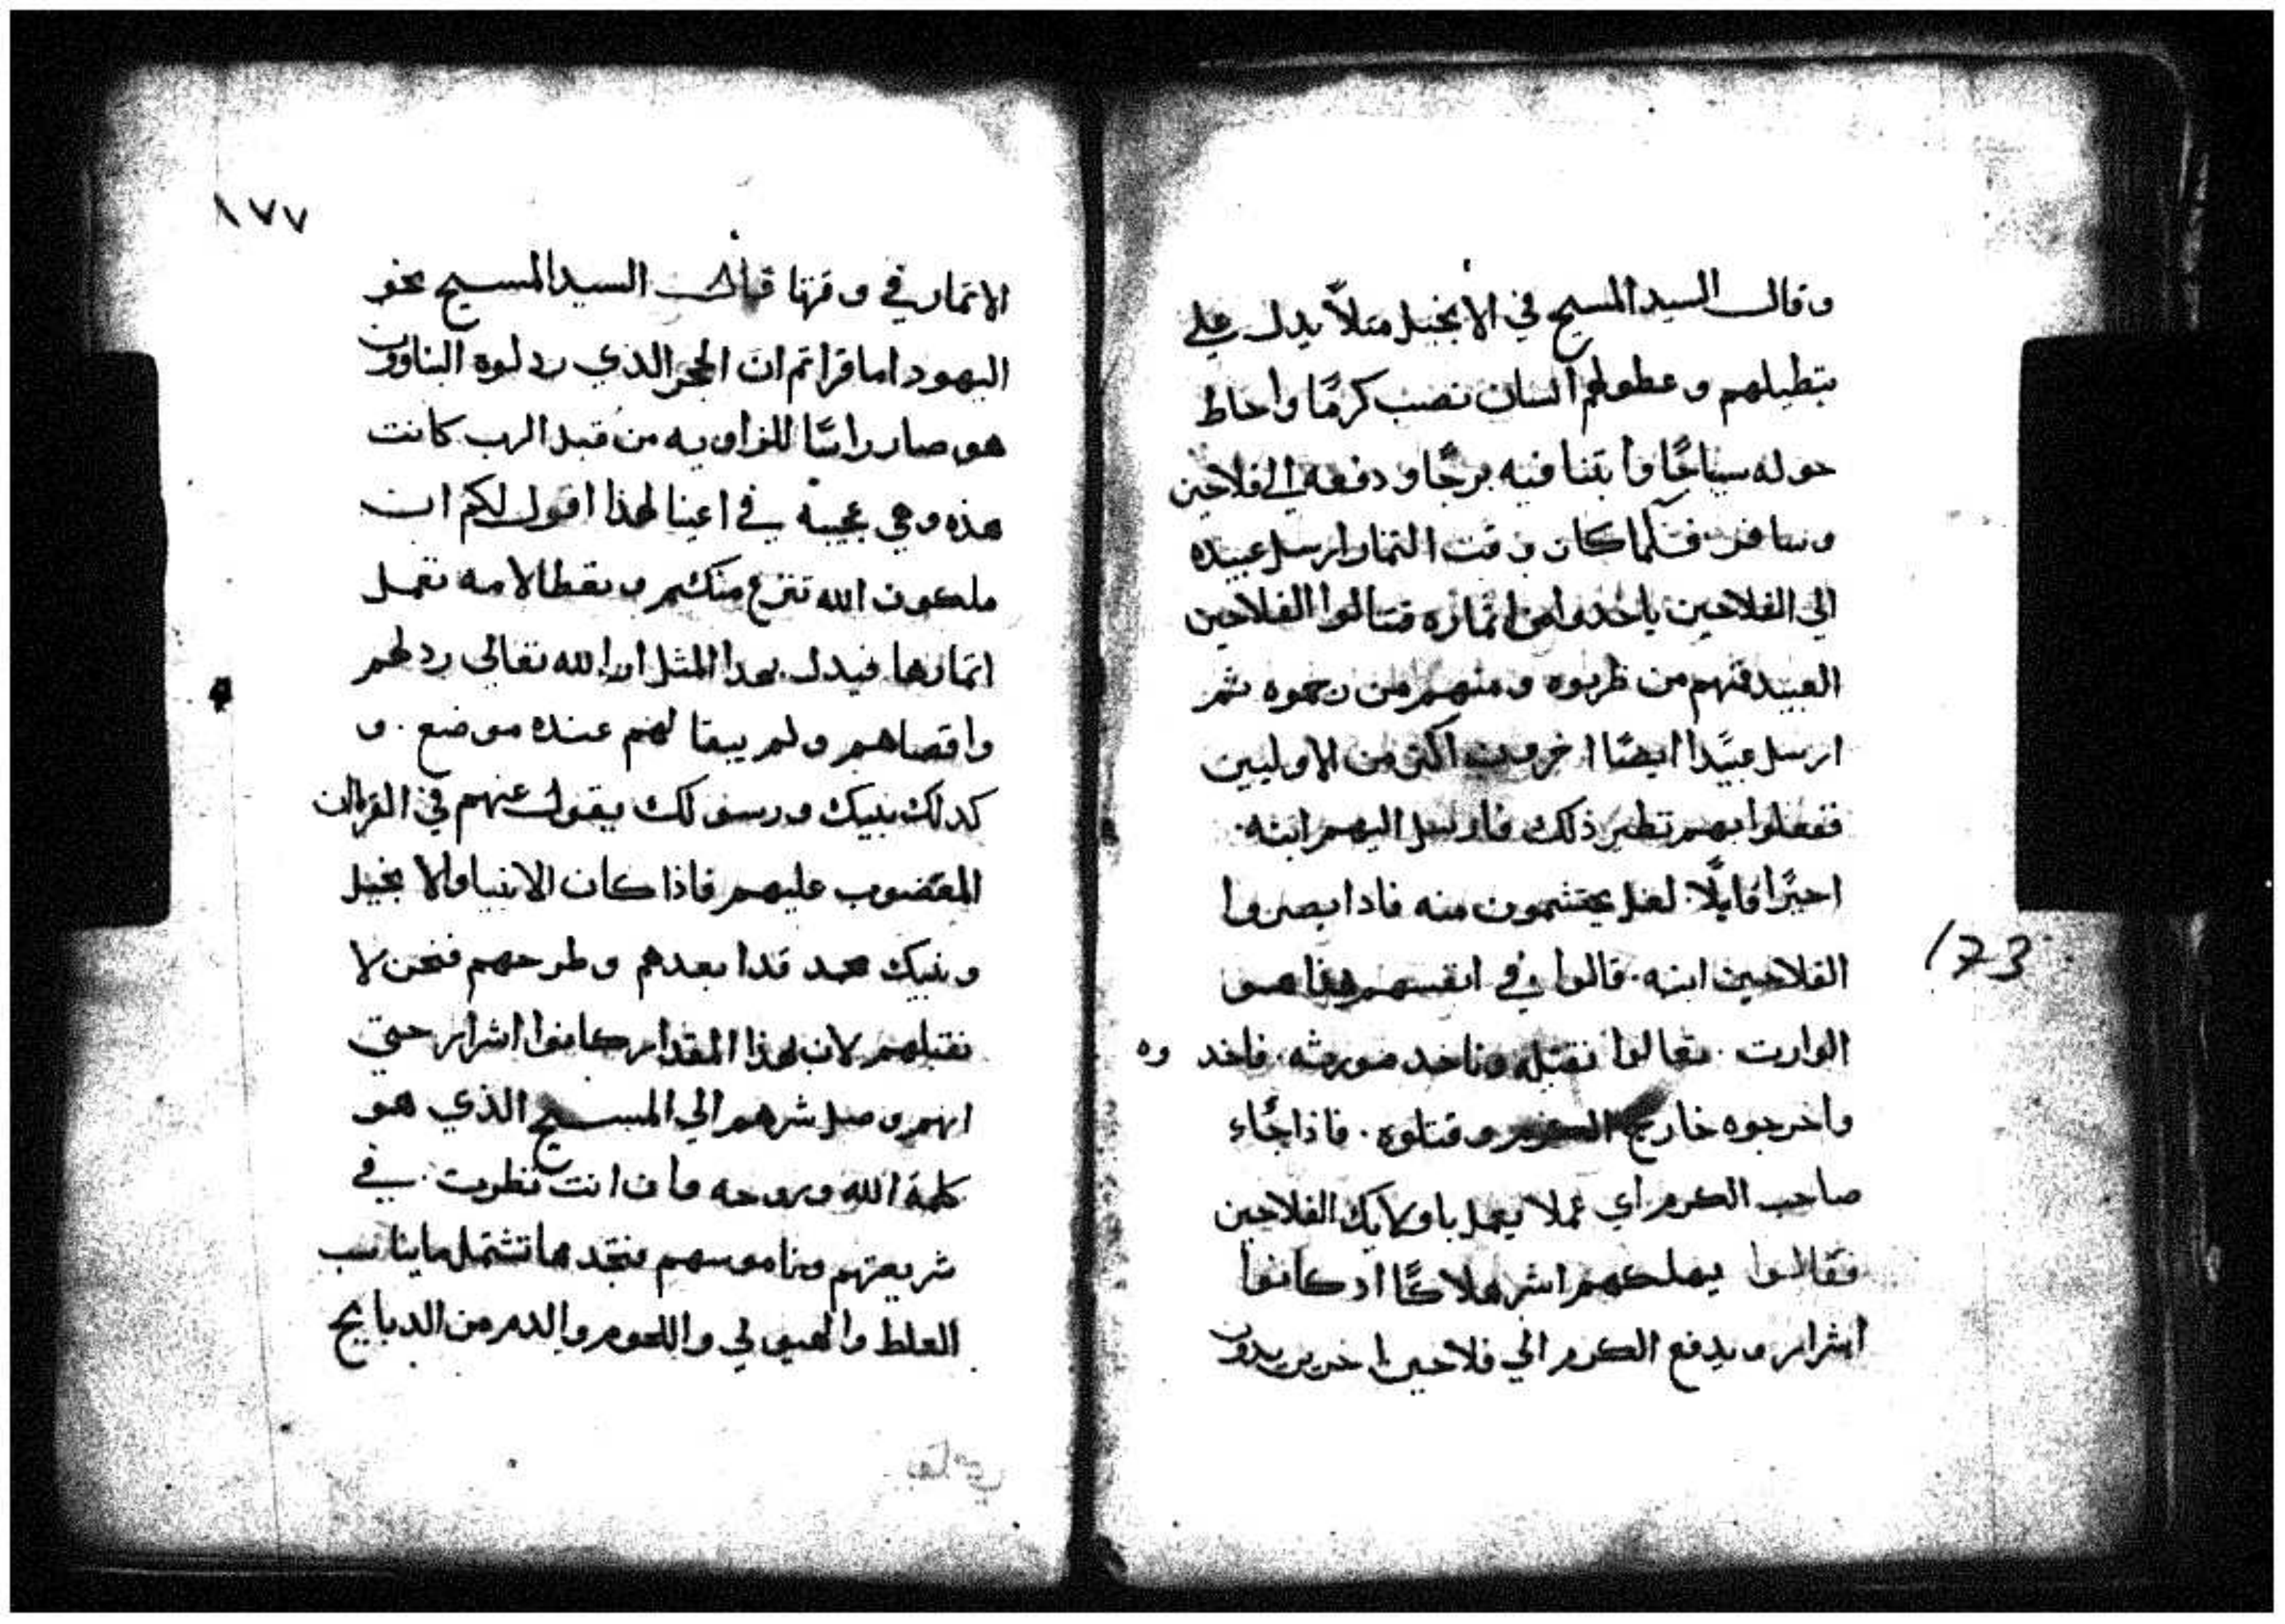 وقال السيد المسيح في الانجيل متلاً يدل علي
بتطيلهم وعطولهم انسان نصب كرمًا واحاط
حوله سياجًا وابتنا فيه برجًا ودفعه الي فلاحين
وسافر فلما كان وقت التمار ارسل عبيده
الي الفلاحين ياخدوا من اتماره فتالوا الفلاحين
العبيد فمنهم من ظربوه ومنهم من رجموه ثم
ارسل عبيدًا ايضًا اخرون اكتر من الاوليين
ففعلوا بهم تطير ذلك فارسل اليهم ابنه
اخيرًا قايلًا لعل يحتشمون منه فادا بصروا
الفلاحين ابنه قالوا في انفسهم هذا هو
الوارت تعالوا نقتله وناخد مورثه فاخد وه
واخرجوه خارج الكرم وقتلوه فاذا جًاء
صاحب الكرم اي عملا يعمل باولايك الفلاحين
فقالوا يهلكهم اشر هلاكًا اد كانوا
اشرار ويدفع الكرم الي فلاحين اخرين يدون
١٧٣
١٧٧
الاتمار في وقتها قال السيد المسيح نحو
اليهود اما قراتم ان الحجر الذي ردلوه البناوون
هو صار راسًا للزاويه من قبل الرب كانت
هذه وهي عجيبة في اعينا لهذا اقول لكم ان
ملكوت الله تنزع منكم وتعطا لامه تعمل
اتمارها فيدل بهدا المثل ان الله تعالي رد لهم
واقصاهم ولم يبقا لهم عنده موضع و
كدلك نبيك ورسولك يقول عنهم في القران
المغضوب عليهم فاذا كان الانبيا والانجيل
ونبيك محمد قد ابعدهم وطرحهم فنحن لا
نقبلهم لان لهذا المقدار كانوا اشرار حتي
انهم وصل شرهم الي المسيح الذي هو
كلمة الله وروحه وان انت نظرت في
شريعتهم وناموسهم فتجدها تشتمل ما يناسب
الغلط والهيولي واللحوم والدم من الدبايح